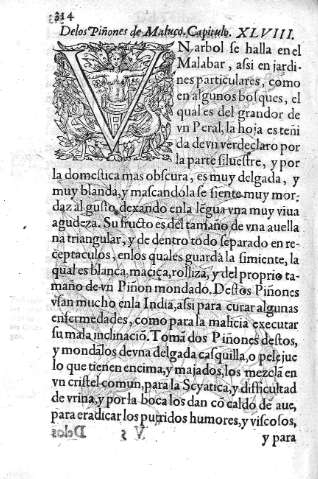 314
Delos Piñones de Maluco. Capitulo. XLVIII.
VN arbol se halla en el
Malabar, assi en jardi-
nes particulares, como
en algunos bosques, el
qual es del grandor de
vn Peral, la hoja es teñi
da de vn verde claro por
la parte siluestre, y por
la domestica mas obscura, es muy delgada, y
muy blanda, y mascandola se siente muy mor-
daz al gusto, dexando en la lẽgua vna muy viua
agudeza. Su fructo es del tamaño de vna auella
na triangular, y de dentro todo separado en re-
ceptaculos, en los quales guarda la simiente, la
qual es blanca, maciça, rolliza, y del proprio ta-
maño de vn Piñon mondado. Destos Piñones
vsan mucho en la India, assi para curar algunas
enfermedades, como para la malicia executar
su mala inclinaciõ. Toma dos Piñones destos,
y mondãlos de vna delgada casquilla, o pelejue
lo que tienen encima, y majados, los mezclã en
vn cristel comun, para la Scyatica, y difficultad
de vrina, y por la boca los dan cõ caldo de aue,
para eradicar los putridos humores, y viscosos,
V 5
y para